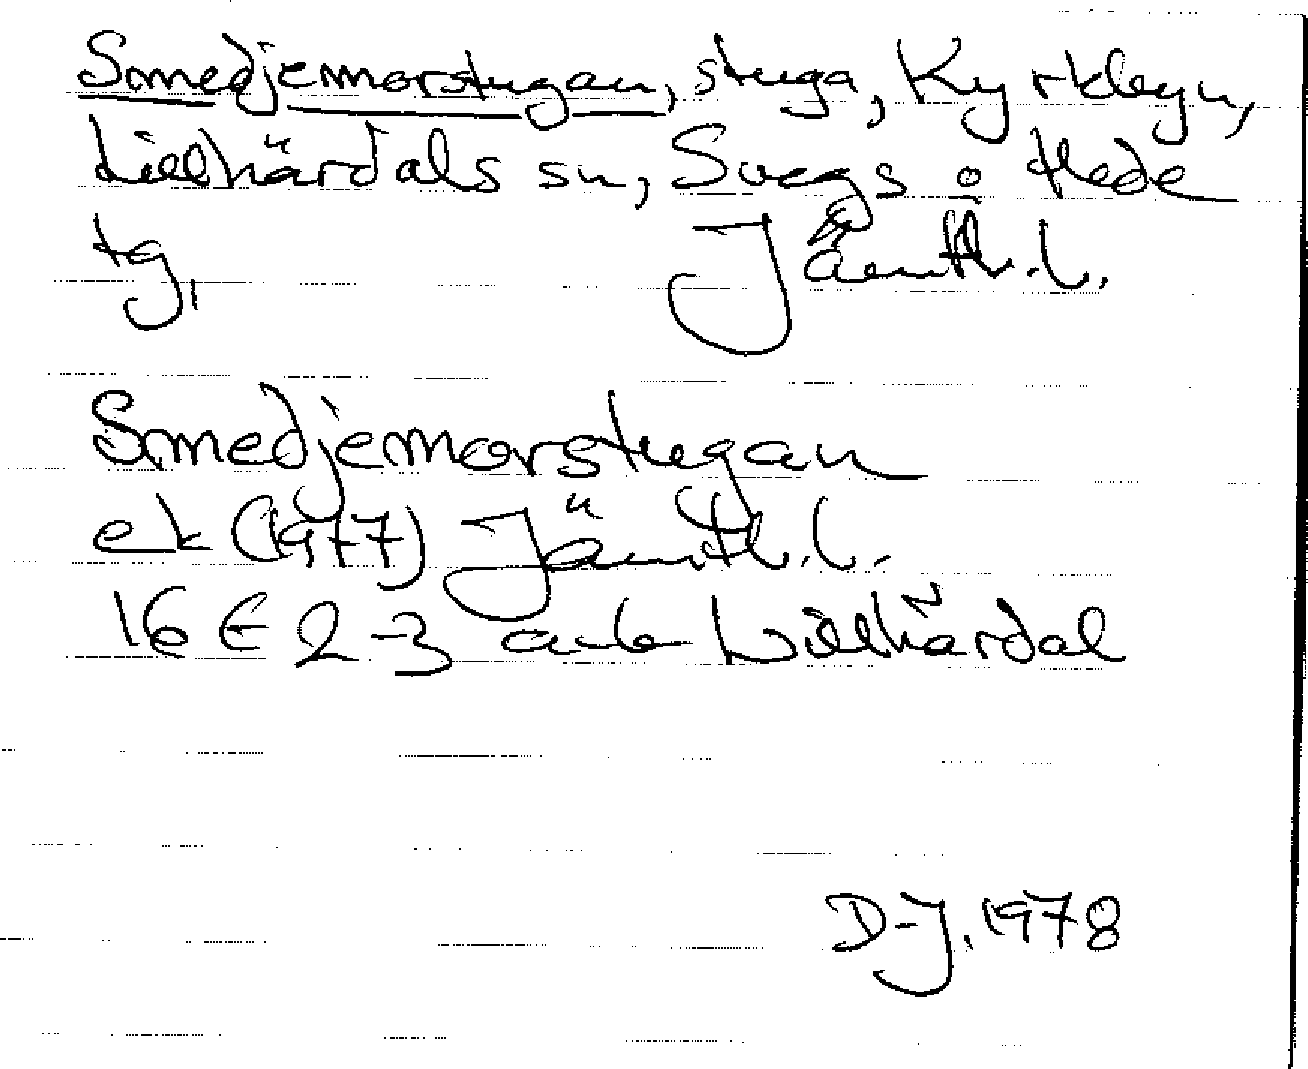 Smedjemorstugan, stuga, Kyrkbyn,
Lillhärdals sn, Svegs o Hede
tg, Jämtl. l.
Smedjemorstugan
ek (1977) Jämtl. l.
16 E 2-3 a-b Lillhärdal
D-J. 1978